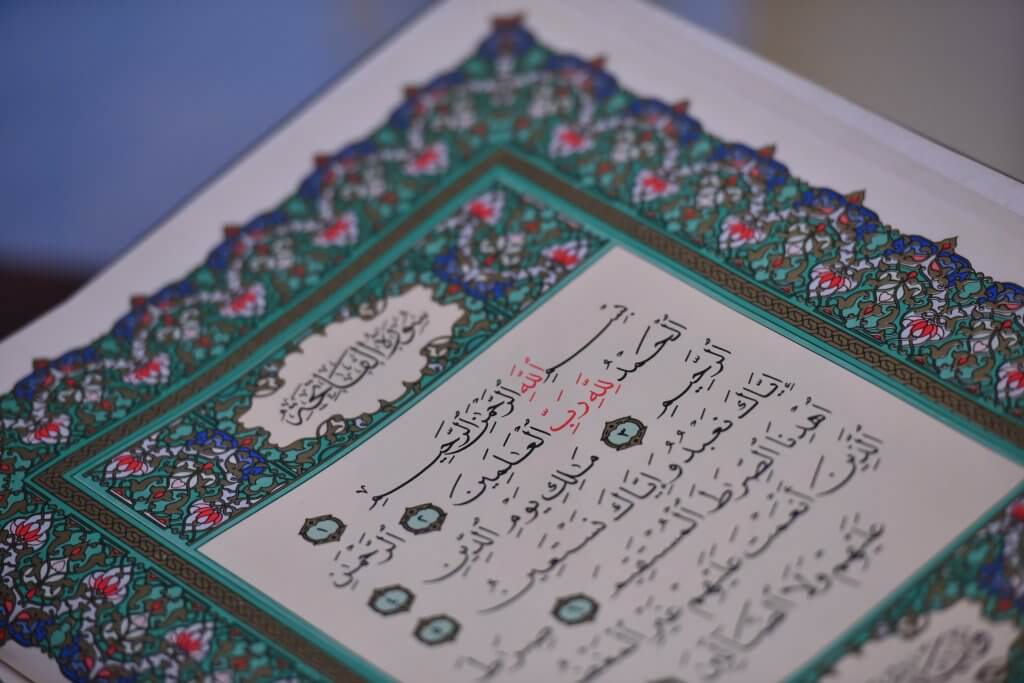 سُورَةُ الْفَاتِحَةِ
بِسْمِ اللَّهِ الرَّحْمَٰنِ الرَّحِيمِ ١
الْحَمْدُ لِلَّهِ رَبِّ الْعَٰلَمِينَ ٢ الرَّحْمَٰنِ
الرَّحِيمِ ٣ مَٰلِكِ يَوْمِ الدِّينِ ٤
إِيَّاكَ نَعْبُدُ وَإِيَّاكَ نَسْتَعِينُ ٥
اهْدِنَا الصِّرَٰطَ الْمُسْتَقِيمَ ٦ صِرَٰطَ
الَّذِينَ أَنْعَمْتَ عَلَيْهِمْ غَيْرِ الْمَغْضُوبِ
عَلَيْهِمْ وَلَا الضَّالِّينَ